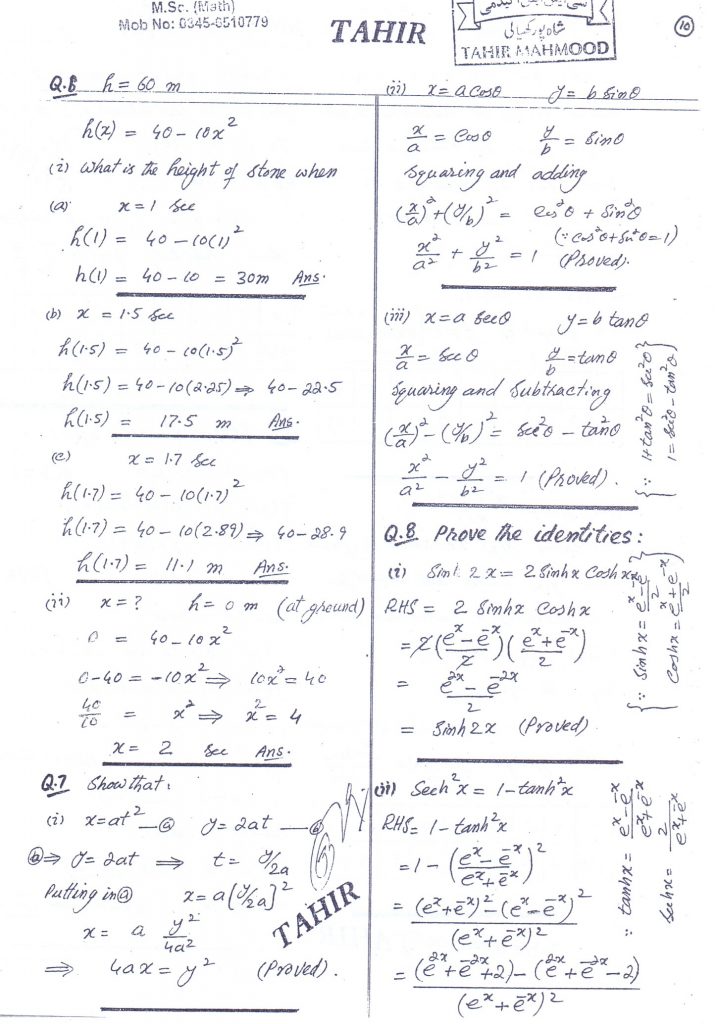 M.Sc. (Math)
Mob No: 0345-6510779
TAHIR
شاہ پور کھیالی
TAHIR MAHMOOD
10
Q.6 h = 60 m
h(x) = 40 - 10x²
(i) What is the height of stone when
(a) x = 1 sec
h(1) = 40 - 10(1)²
h(1) = 40 - 10 = 30m Ans.
(b) x = 1.5 sec
h(1.5) = 40 - 10(1.5)²
h(1.5) = 40 - 10(2.25) ⇒ 40 - 22.5
h(1.5) = 17.5 m Ans.
(c) x = 1.7 sec
h(1.7) = 40 - 10(1.7)²
h(1.7) = 40 - 10(2.89) ⇒ 40 - 28.9
h(1.7) = 11.1 m Ans.
(ii) x = ? h = 0 m (at ground)
0 = 40 - 10x²
0 - 40 = -10x² ⇒ 10x² = 40
40/10 = x² ⇒ x² = 4
x = 2 sec Ans.
Q.7 Show that:
(i) x = at² — ⓐ y = 2at — ⓑ
ⓑ ⇒ y = 2at ⇒ t = y/2a
Putting in ⓐ x = a[y/2a]²
x = a y²/4a²
⇒ 4ax = y² (Proved).
TAHIR
(ii) x = a Cosθ y = b Sinθ
x/a = Cosθ y/b = Sinθ
Squaring and adding
(x/a)² + (y/b)² = Cos²θ + Sin²θ
(∵ Cos²θ + Sin²θ = 1)
x²/a² + y²/b² = 1 (Proved).
(iii) x = a Secθ y = b tanθ
x/a = Secθ y/b = tanθ
Squaring and Subtracting
(x/a)² - (y/b)² = Sec²θ - tan²θ
x²/a² - y²/b² = 1 (Proved).
{∵ 1 + tan²θ = Sec²θ
1 = Sec²θ - tan²θ}
Q.8 Prove the identities:
(i) Sinh 2x = 2 Sinhx Coshx
RHS = 2 Sinhx Coshx
= 2(eˣ - e⁻ˣ/2)(eˣ + e⁻ˣ/2)
= e²ˣ - e⁻²ˣ/2
= Sinh2x (Proved)
{∵ Sinhx = eˣ - e⁻ˣ/2
Coshx = eˣ + e⁻ˣ/2}
(ii) Sech²x = 1 - tanh²x
RHS = 1 - tanh²x
= 1 - (eˣ - e⁻ˣ/eˣ + e⁻ˣ)²
= (eˣ + e⁻ˣ)² - (eˣ - e⁻ˣ)²/(eˣ + e⁻ˣ)²
= (e²ˣ + e⁻²ˣ + 2) - (e²ˣ + e⁻²ˣ - 2)/(eˣ + e⁻ˣ)²
∵ tanhx = eˣ - e⁻ˣ/eˣ + e⁻ˣ
Sechx = 2/eˣ + e⁻ˣ